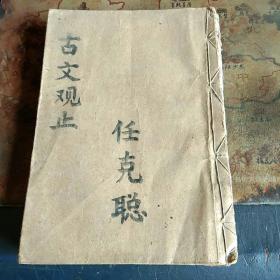 古文观止
任克聪